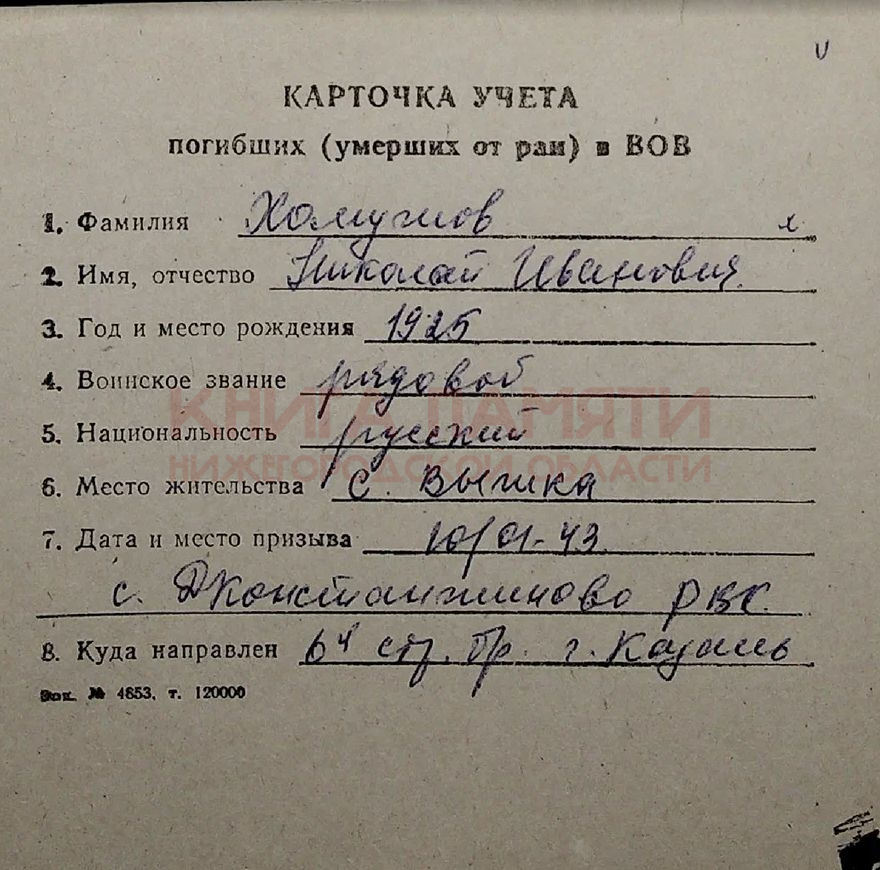 КАРТОЧКА УЧЕТА
погибших (умерших от ран) в ВОВ
1. Фамилия Хомутов
2. Имя, отчество Николай Иванович
3. Год и место рождения 1925
4. Воинское звание рядовой
5. Национальность русский
КНИГА ПАМЯТИ
НИЖЕГОРОДСКОЙ ОБЛАСТИ
6. Место жительства с.
7. Дата и место призыва 10/01-43
с. ДКонстантиново РВК.
8. Куда направлен стр. бр. г. Казань
Зак. № 4853. т. 120000